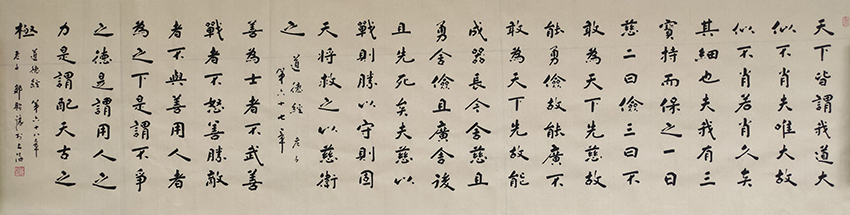 天下皆謂我道大
似不肖夫唯大故
似不肖若肖久矣
其細也夫我有三
寶持而保之一曰
慈二曰儉三曰不
敢為天下先慈故
能勇儉故能廣不
敢為天下先故能
成器長今舍慈且
勇舍儉且廣舍後
且先死矣夫慈以
戰則勝以守則固
天將救之以慈衛
之
道德經 老子
第六十七章
善為士者不武善
戰者不怒善勝敵
者不與善用人者
為之下是謂不爭
之德是謂用人之
力是謂配天古之
極
道德經 第六十八章
老子